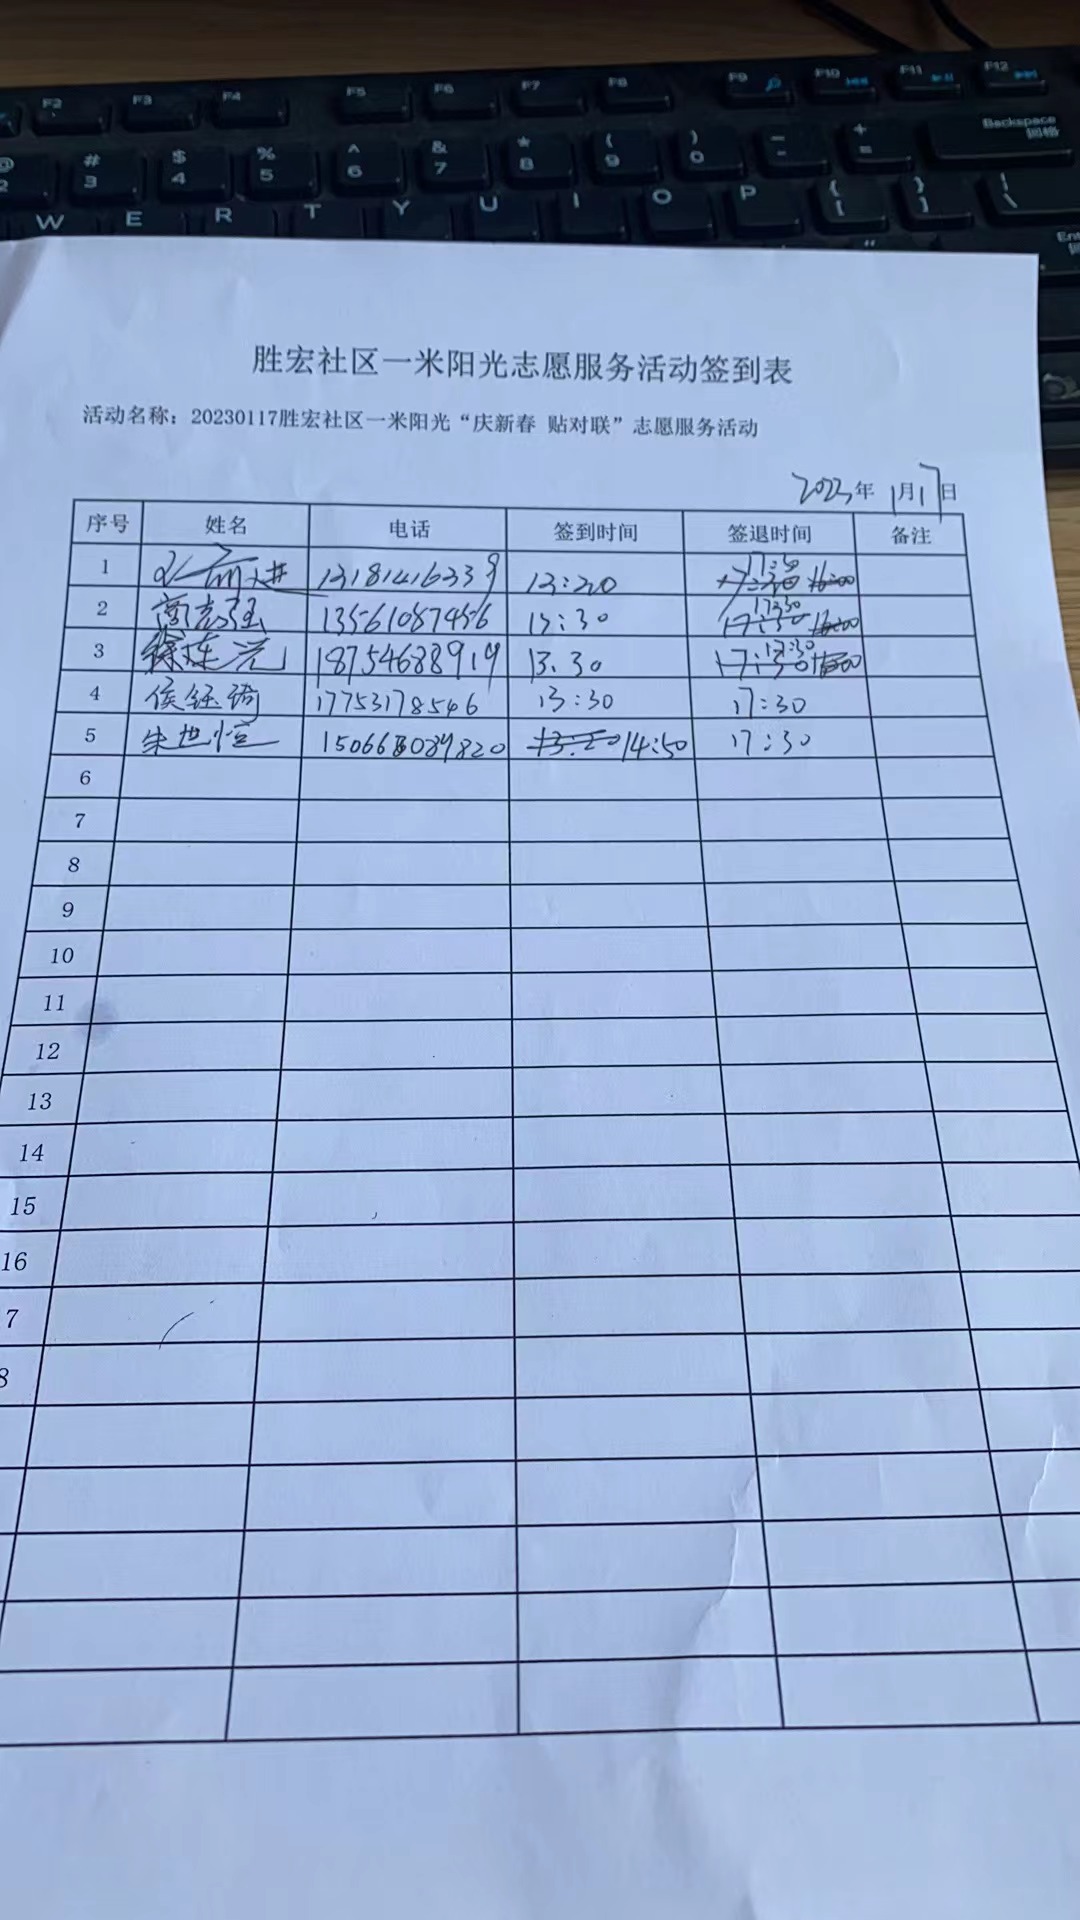 F2 F3 F4 F5 F6 F7 F8 F9 F10 F11 F12
@ 2 # 3 $ 4 % 5 ^ 6 & 7 * 8 ( 9 ) 0 - + = Backspace 回格
W E R T Y U I O P { [ } ] | \ Ent
胜宏社区一米阳光志愿服务活动签到表
活动名称：20230117胜宏社区一米阳光“庆新春 贴对联”志愿服务活动
2023年 1月17日
序号 姓名 电话 签到时间 签退时间 备注
1 13181416339 13:20 17:30
2 高志强 13561087456 13:30 17:30
3 徐连 18754688919 13:30 17:30
4 侯钰琦 17753178546 13:30 17:30
5 朱世恒 14:50 17:30
6
7
8
9
10
11
12
13
14
15
16
7
8